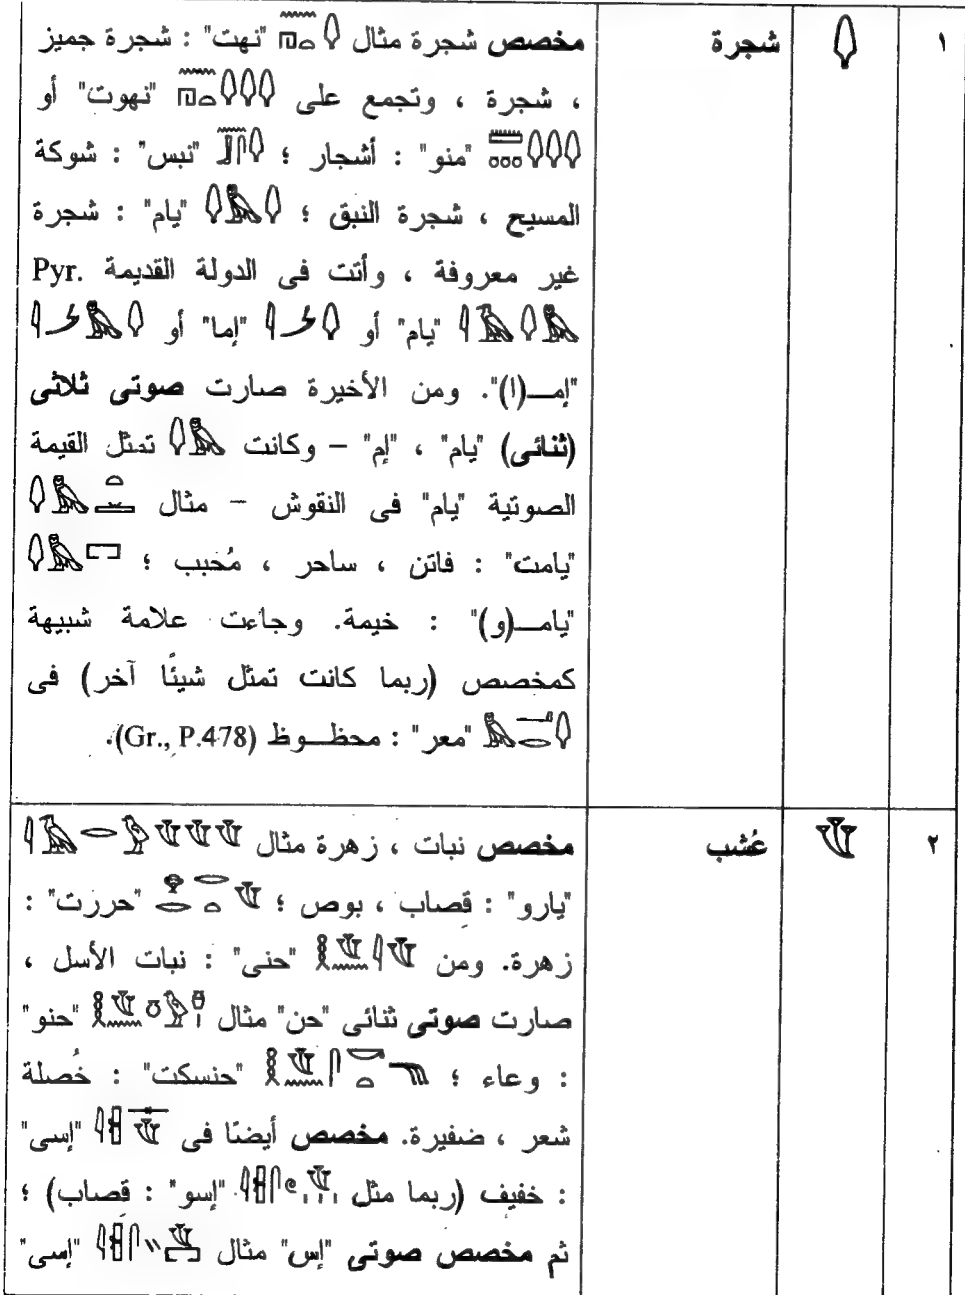 ١ 𓆭 شجرة مخصص شجرة مثال "نهت" : شجرة جميز
، شجرة ، وتجمع على "نهوت" أو
"منو" : أشجار ؛ "نبس" : شوكة
المسيح ، شجرة النبق ؛ "يام" : شجرة
غير معروفة ، وأتت فى الدولة القديمة Pyr.
"يام" أو "إما" أو
"إمـــ(ا)". ومن الأخيرة صارت صوتى ثلاثى
(ثنائى) "يام" ، "إم" – وكانت تمثل القيمة
الصوتية "يام" فى النقوش – مثال
"يامت" : فاتن ، ساحر ، مُحبب ؛
"يامـــ(و)" : خيمة. وجاءت علامة شبيهة
كمخصص (ربما كانت تمثل شيئًا آخر) فى
"معر" : محظــوظ (Gr., P.478).
٢ عُشب مخصص نبات ، زهرة مثال
"يارو" : قصاب ، بوص ؛ "حررت" :
زهرة. ومن "حنى" : نبات الأسل ،
صارت صوتى ثنائى "حن" مثال "حنو"
: وعاء ؛ "حنسكت" : خُصلة
شعر ، ضفيرة. مخصص أيضًا فى "إسى"
: خفيف (ربما مثل "إسو" : قصاب) ؛
ثم مخصص صوتى "إس" مثال "إسى"